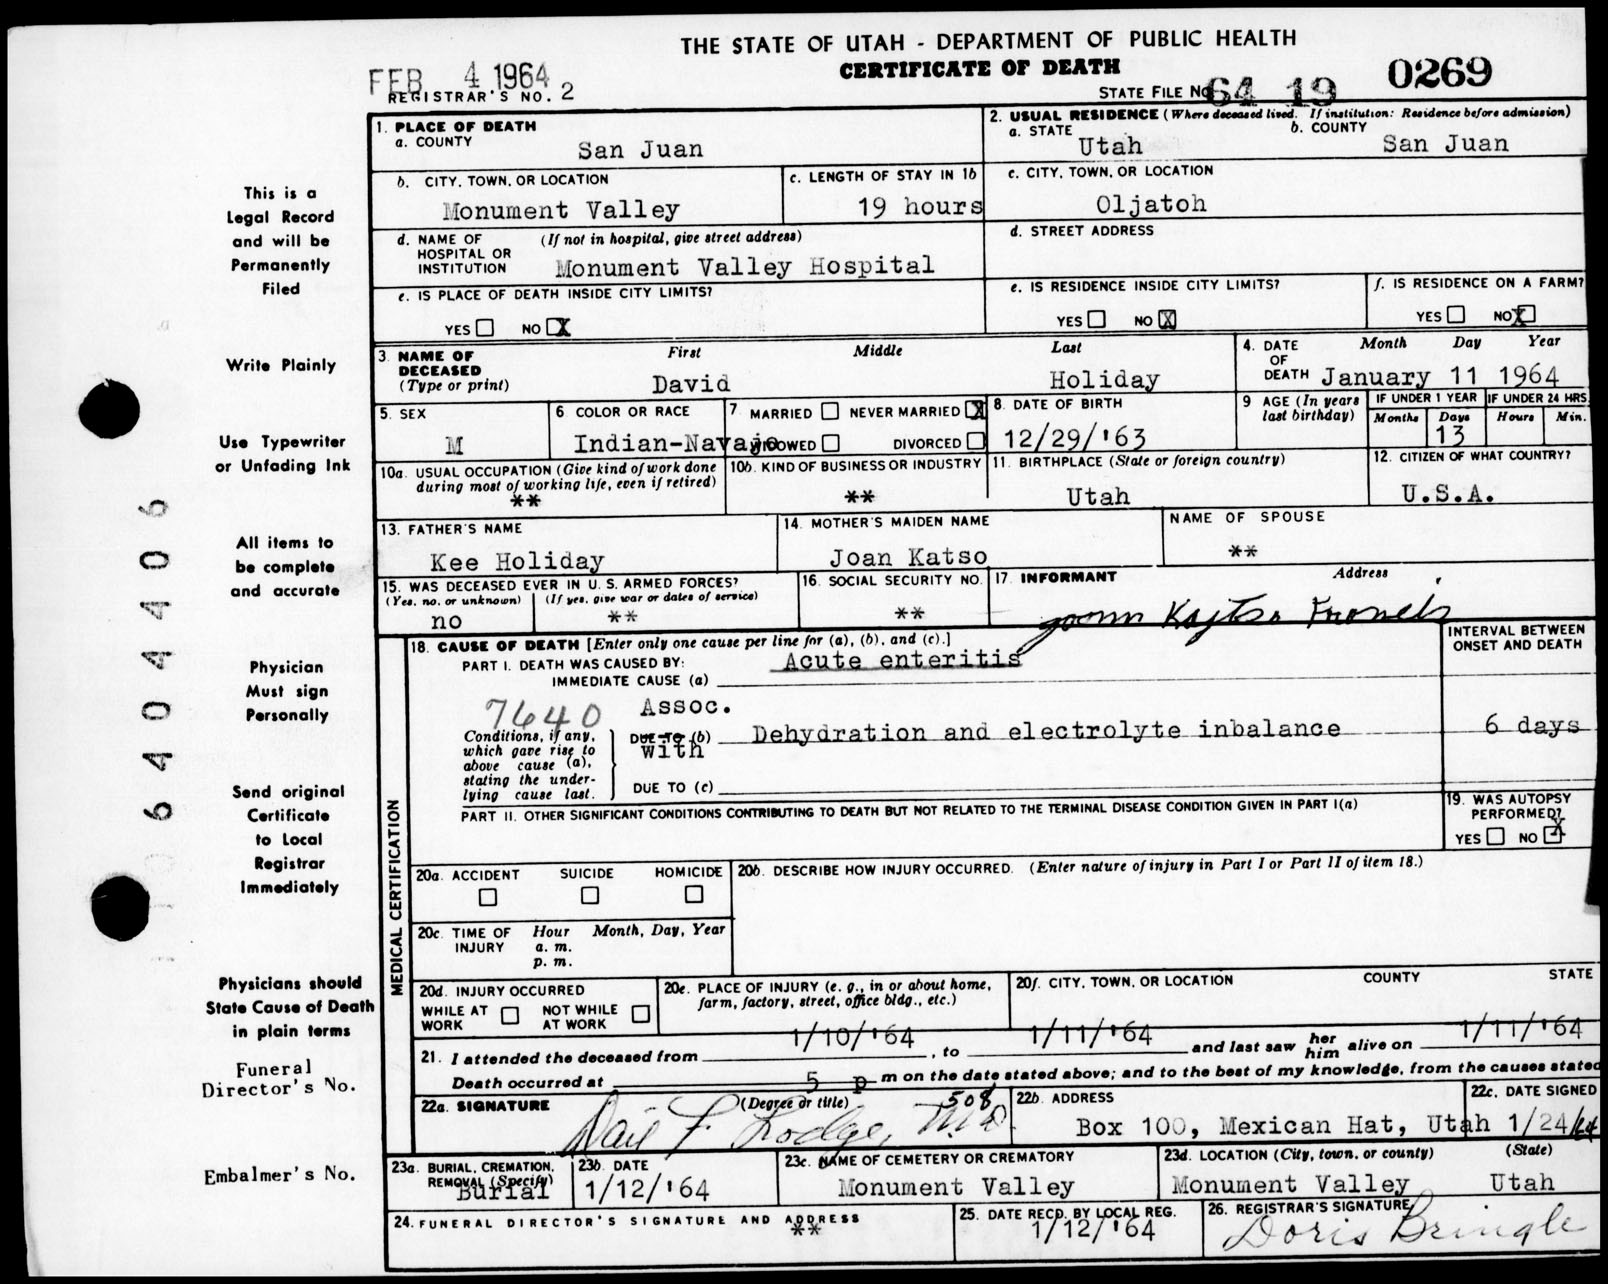 THE STATE OF UTAH - DEPARTMENT OF PUBLIC HEALTH
CERTIFICATE OF DEATH
FEB 4 1964
REGISTRAR'S NO. 2
STATE FILE NO. 64 19 0269
1. PLACE OF DEATH
a. COUNTY
San Juan
2. USUAL RESIDENCE (Where deceased lived. If institution: Residence before admission)
a. STATE
Utah
b. COUNTY
San Juan
b. CITY, TOWN, OR LOCATION
Monument Valley
c. LENGTH OF STAY IN 1b
19 hours
c. CITY, TOWN, OR LOCATION
Oljatoh
d. NAME OF HOSPITAL OR INSTITUTION
(If not in hospital, give street address)
Monument Valley Hospital
d. STREET ADDRESS
e. IS PLACE OF DEATH INSIDE CITY LIMITS?
YES NO X
e. IS RESIDENCE INSIDE CITY LIMITS?
YES NO X
f. IS RESIDENCE ON A FARM?
YES NO X
3. NAME OF DECEASED
(Type or print)
First Middle Last
David Holiday
4. DATE OF DEATH
Month Day Year
January 11 1964
5. SEX
M
6 COLOR OR RACE
Indian-Navajo
7 MARRIED NEVER MARRIED X
WIDOWED DIVORCED
8. DATE OF BIRTH
12/29/'63
9 AGE (In years last birthday)
IF UNDER 1 YEAR
Months Days
13
IF UNDER 24 HRS.
Hours Min.
10a. USUAL OCCUPATION (Give kind of work done during most of working life, even if retired)
**
10b. KIND OF BUSINESS OR INDUSTRY
**
11. BIRTHPLACE (State or foreign country)
Utah
12. CITIZEN OF WHAT COUNTRY?
U.S.A.
13. FATHER'S NAME
Kee Holiday
14. MOTHER'S MAIDEN NAME
Joan Katso
NAME OF SPOUSE
**
15. WAS DECEASED EVER IN U.S. ARMED FORCES?
(Yes, no, or unknown) (If yes, give war or dates of service)
no **
16. SOCIAL SECURITY NO.
**
17. INFORMANT Address
MEDICAL CERTIFICATION
18. CAUSE OF DEATH [Enter only one cause per line for (a), (b), and (c).]
PART I. DEATH WAS CAUSED BY:
IMMEDIATE CAUSE (a)
Acute enteritis
INTERVAL BETWEEN ONSET AND DEATH
7640
Conditions, if any, which gave rise to above cause (a), stating the underlying cause last.
Assoc. with
DUE TO (b)
Dehydration and electrolyte inbalance 6 days
DUE TO (c)
PART II. OTHER SIGNIFICANT CONDITIONS CONTRIBUTING TO DEATH BUT NOT RELATED TO THE TERMINAL DISEASE CONDITION GIVEN IN PART I(a)
19. WAS AUTOPSY PERFORMED?
YES NO X
20a. ACCIDENT SUICIDE HOMICIDE
20b. DESCRIBE HOW INJURY OCCURRED. (Enter nature of injury in Part I or Part II of item 18.)
20c. TIME OF INJURY
Hour Month, Day, Year
a. m.
p. m.
20d. INJURY OCCURRED
WHILE AT WORK NOT WHILE AT WORK
20e. PLACE OF INJURY (e. g., in or about home, farm, factory, street, office bldg., etc.)
20f. CITY, TOWN, OR LOCATION COUNTY STATE
21. I attended the deceased from 1/10/'64, to 1/11/'64 and last saw her him alive on 1/11/'64
Death occurred at 5 p m on the date stated above; and to the best of my knowledge, from the causes stated
22a. SIGNATURE (Degree or title) 508
Lodge, M.D.
22b. ADDRESS
Box 100, Mexican Hat, Utah
22c. DATE SIGNED
1/24/64
23a. BURIAL, CREMATION, REMOVAL (Specify)
Burial
23b. DATE
1/12/'64
23c. NAME OF CEMETERY OR CREMATORY
Monument Valley
23d. LOCATION (City, town, or county) (State)
Monument Valley Utah
24. FUNERAL DIRECTOR'S SIGNATURE AND ADDRESS
**
25. DATE RECD. BY LOCAL REG.
1/12/'64
26. REGISTRAR'S SIGNATURE
Doris Bringle
This is a
Legal Record
and will be
Permanently
Filed
Write Plainly
Use Typewriter
or Unfading Ink
All items to
be complete
and accurate
Physician
Must sign
Personally
Send original
Certificate
to Local
Registrar
Immediately
Physicians should
State Cause of Death
in plain terms
Funeral
Director's No.
Embalmer's No.
6404406